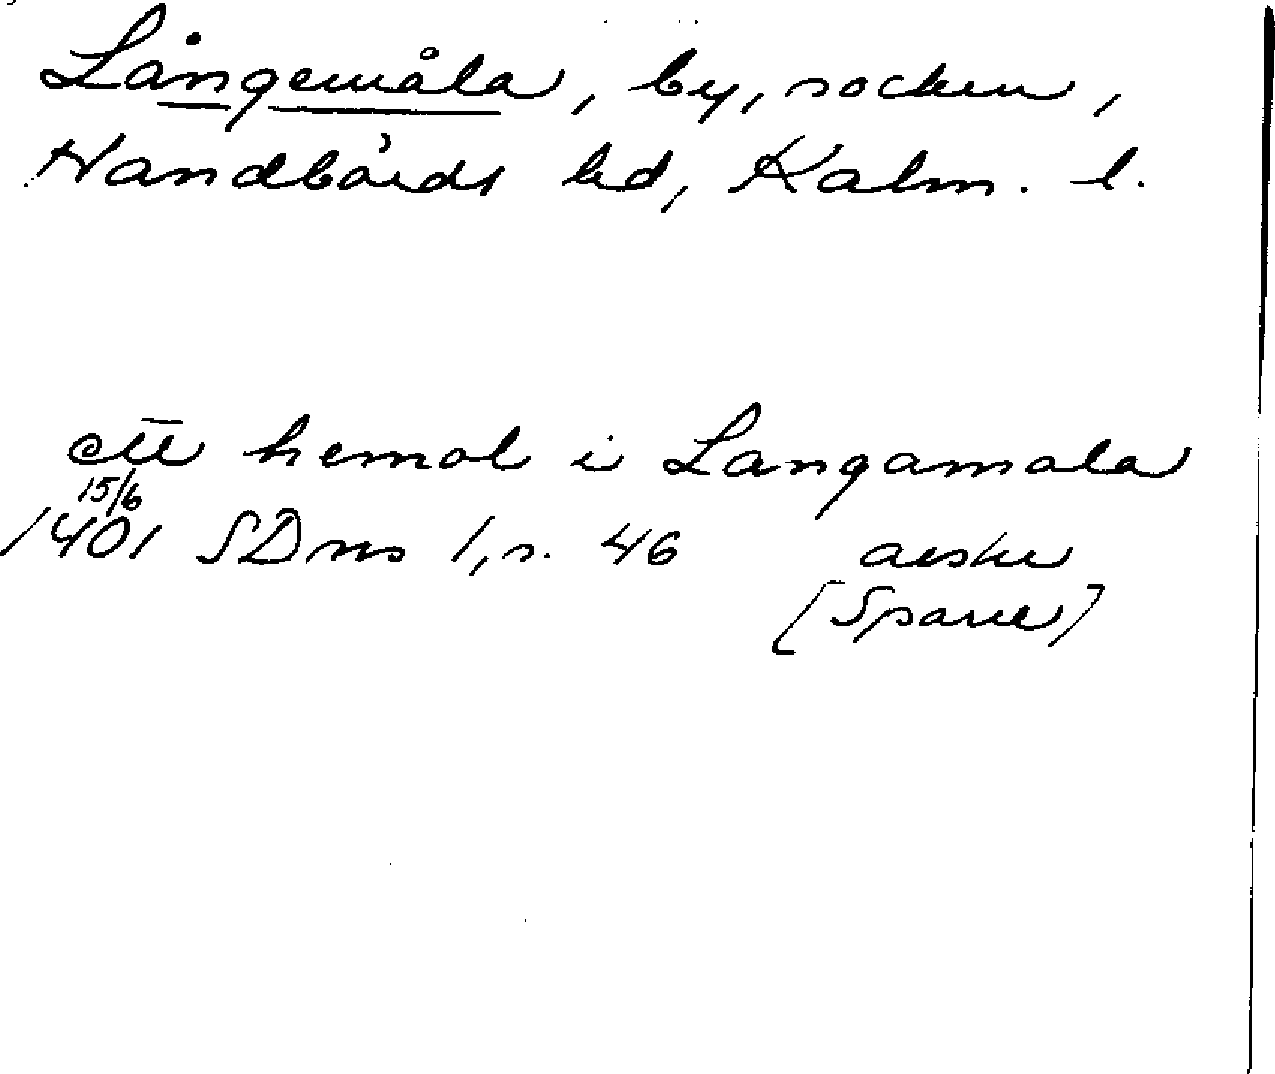 Långemåla, by, socken,
Handbörds hd, Kalm. l.
ett hemol i Langamala
15/6
1401 SDns 1, s. 46 aeske
[Sparre]